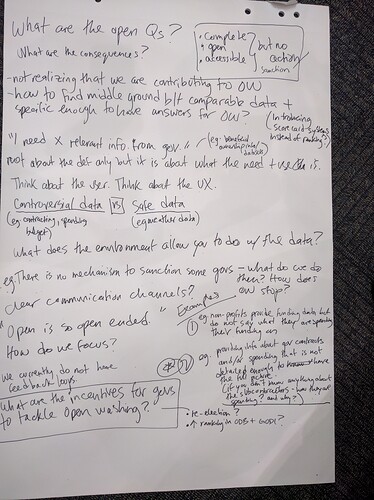 What are the open Qs?
What are the consequences?
• complete
• open
• accessible
but no
action/
sanction
- not realizing that we are contributing to OW
- how to find middle ground b/t comparable data +
specific enough to have answers for OW?
(Introducing
scorecard systems
instead of ranking?)
"I need X relevant info. from gov."
(eg. beneficial
ownership info/
datasets)
not about the def only but it is about what the need + use is.
Think about the user. Think about the UX.
Controversial data vs Safe data
(eg. contracting, spending
budget)
(eg. weather data)
What does the environment allow you to do w/ the data?
eg. There is no mechanism to sanction some govs - what do we do
then? How does
OW stop?
clear communication channels?
"Open is so open ended."
How do we focus?
Examples
① eg. non-profits provide funding data but
do not say what they are spending
their funding on
we currently do not have
feedback loops.
② eg. providing info about gov contracts
and/or spending that is not
detailed enough to
the full picture
(if you don't know anything about
the subcontractors - how they are
spending? and why?)
What are the incentives for govs
to tackle open washing?
• re-election?
• ↑ ranking in ODB + GODI?